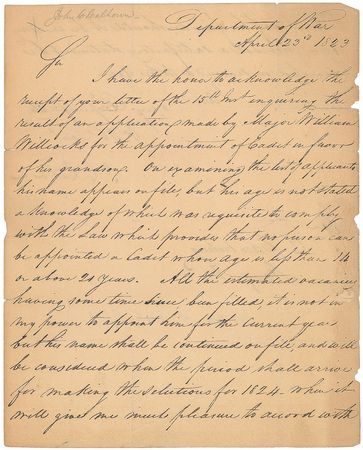 John C Calhoun
Department of War
April 23d 1823
Sir
I have the honor to acknowledge the
receipt of your letter of the 15th Inst enquiring the
result of an application made by Major William
Willcocks for the appointment of Cadet in favor
of his grandson. On examining the list of applicants
his name appears on file, but his age is not stated
a knowledge of which was requisite to comply
with the Law which provides that no person can
be appointed a Cadet whose age is less than 14
or above 21 Years. All the estimated vacancies
having some time since been filled, it is not in
my power to appoint him for the current year
but his name shall be continued on file and will
be considered when the period shall arrive
for making the selections for 1824. when it
will give me much pleasure to accord with